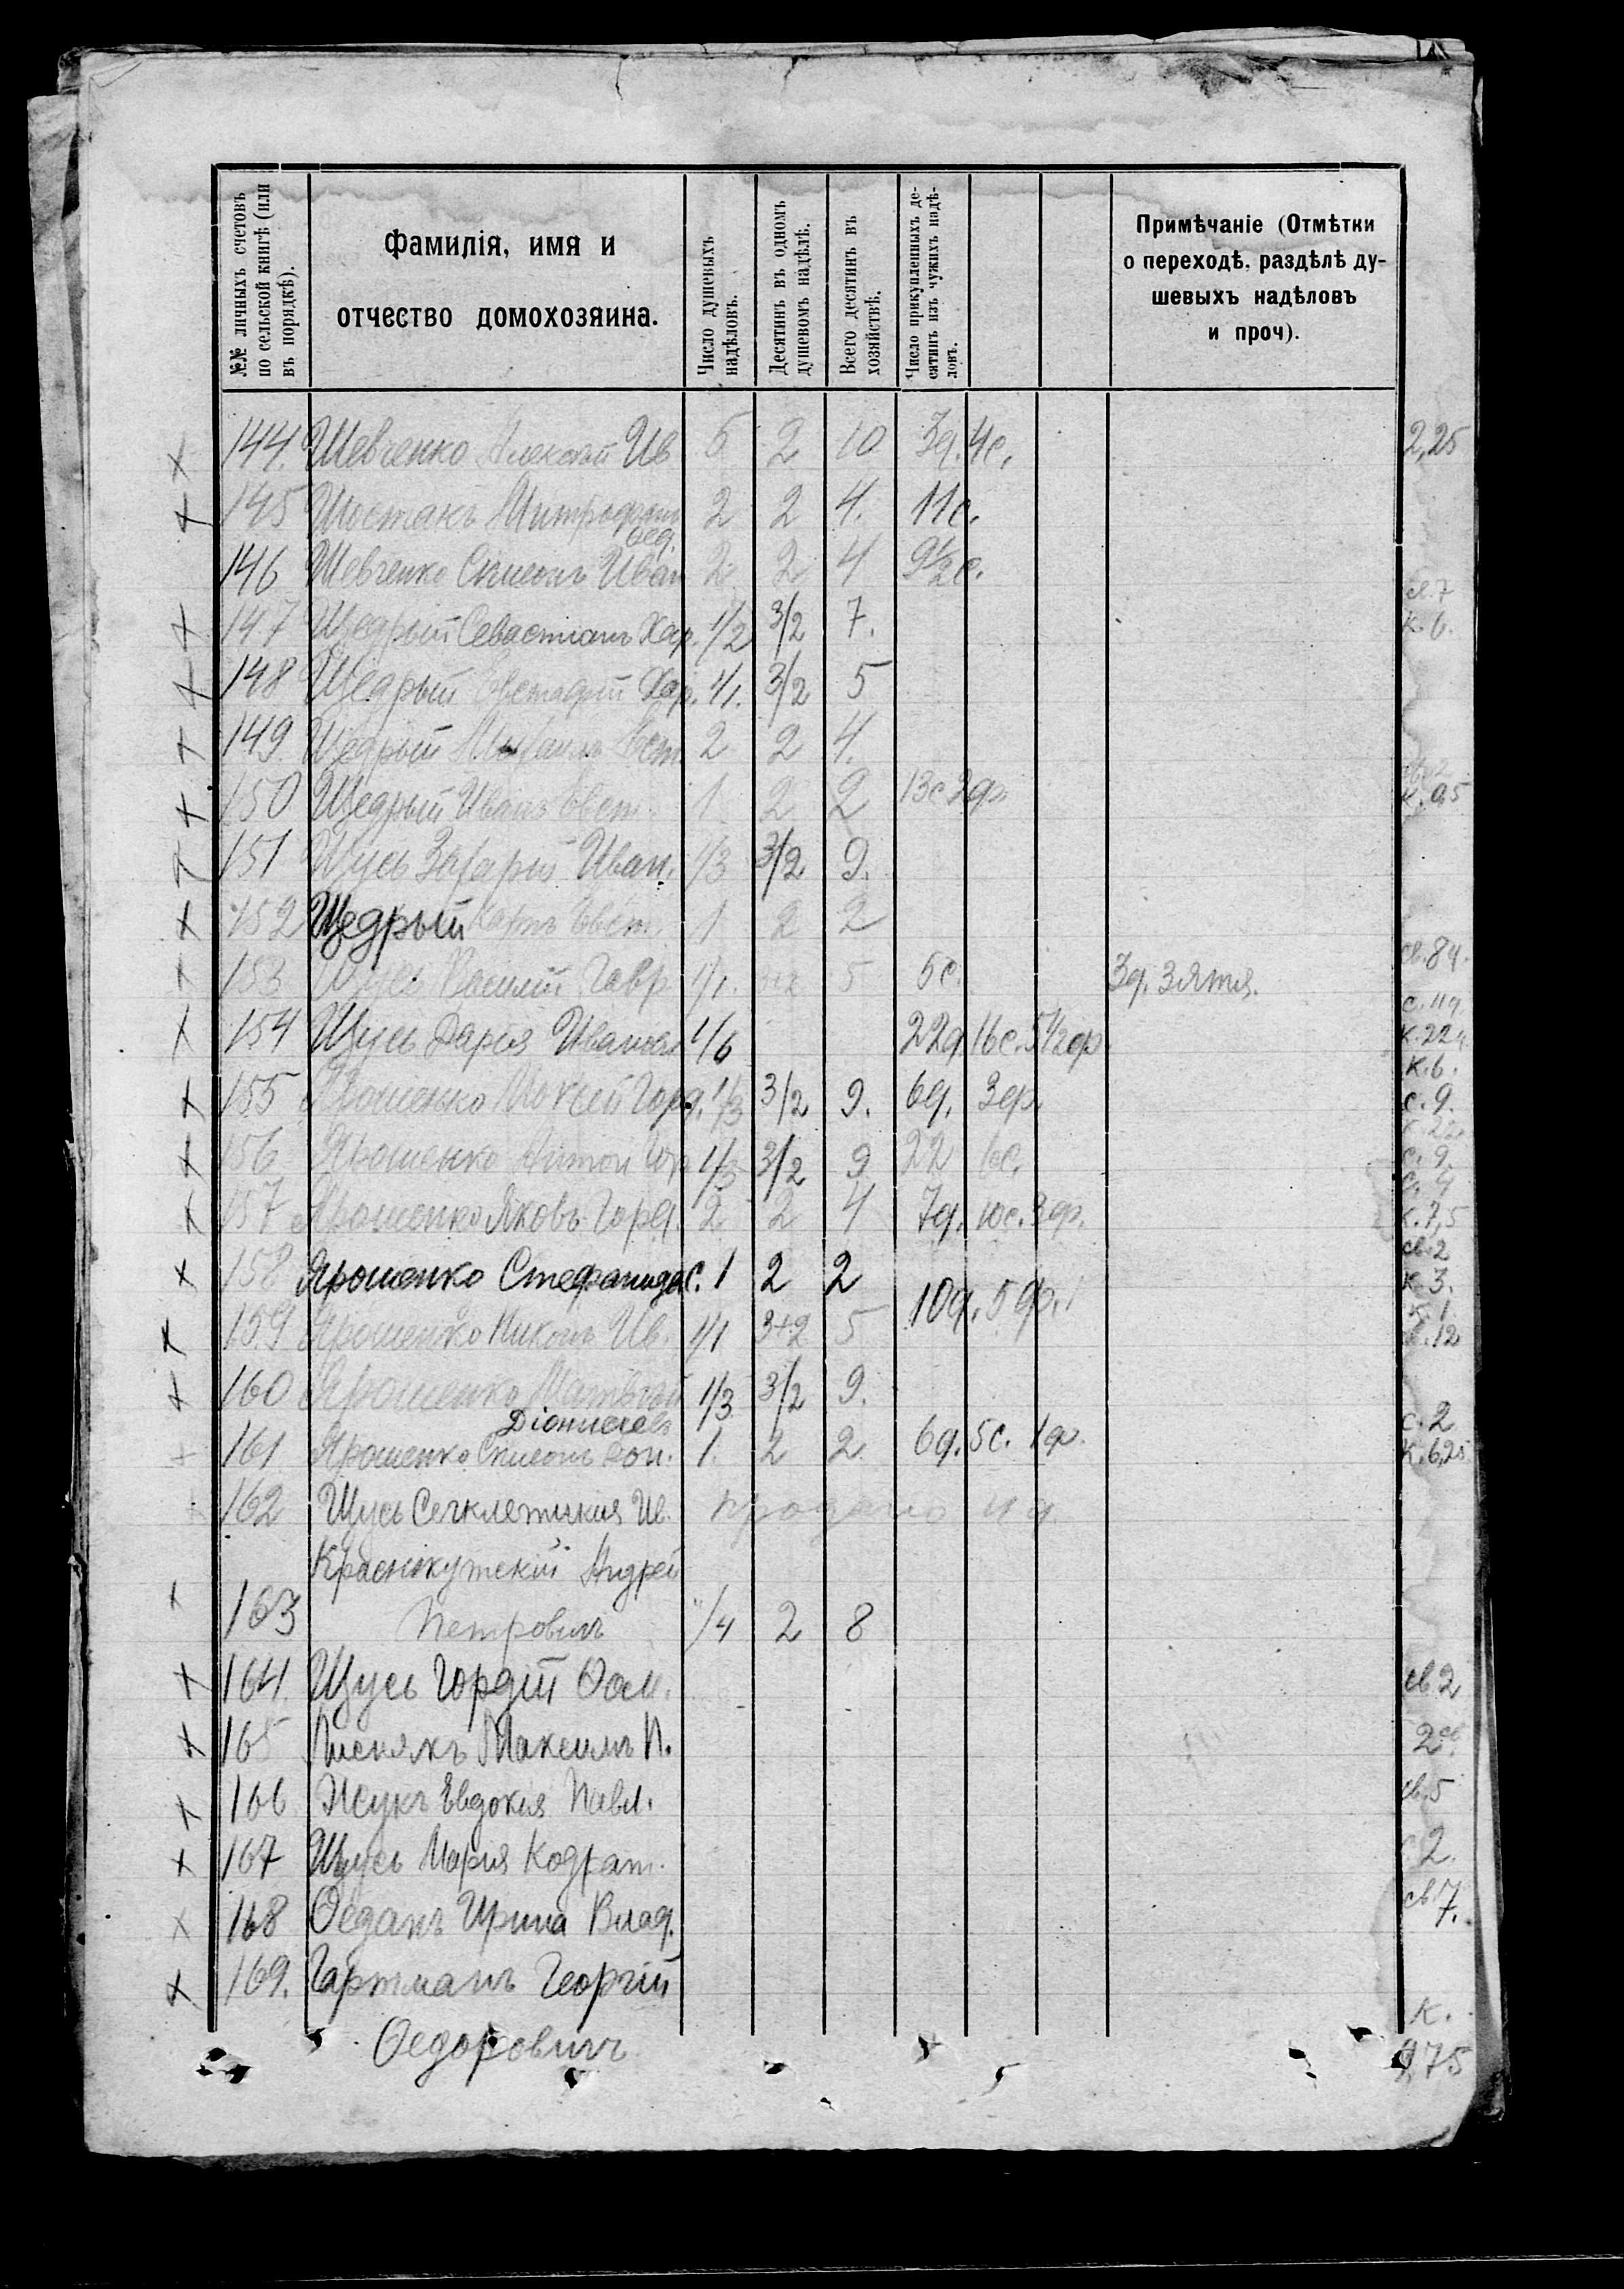 №№ личныхъ счетовъ по сельской книгѣ (или въ порядкѣ).
Фамилія, имя и отчество домохозяина.
Число душевыхъ надѣловъ.
Десятинъ въ одномъ душевомъ надѣлѣ.
Всего десятинъ въ хозяйствѣ.
Число прикупленныхъ десятинъ изъ чужихъ надѣловъ.
Примѣчаніе (Отмѣтки о переходѣ, раздѣлѣ душевыхъ надѣловъ и проч).
144. Шевченко Алексѣй Ив 5 2 10 3д. 4с. 2,25
145 Шостакъ Митрофанъ Фед. 2 2 4. 11с.
146 Шевченко Симеонъ Иван 2 2 4 9½с.
147 Щедрый Севастіанъ Хар. 1/2 3/2 7. к. 6.
148 Щедрый Евстафій Хар. 1/1. 3/2 5
149. Щедрый Михаилъ Евст 2 2 4.
150 Щедрый Иванъ Евст. 1 2 2 13с 2др.
151 Щусь Захарій Иван. 1/3 3/2 9.
152 Щедрый Карпъ Евст. 1 2 2
153 Щусь Василій Гавр 1/1. 5 5с. 3д. зятя. св. 84.
154 Щусь Дарія Иванова 1/6 22д. 16с. 5½др
155 Ярошенко Моисей Горд. 1/3 3/2 9. 6д. 3др. с. 9.
156 Ярошенко Антон Гор 1/3 3/2 9 22 с. 9.
157 Ярошенко Яковъ Горд. 2 2 4 7д. 10с. 3др. к. 7,5
158 Ярошенко Стефанида С. 1 2 2 св. 2 к. 3.
10д. 5др.
159 Ярошенко Никонъ Ив. 1/1 3+2 5 к. 1 св. 12
160 Ярошенко Матвѣй Діонисіевъ 1/3 3/2 9.
161 Ярошенко Симеонъ 1. 2 2. 6д. 5с. 1др. с. 2 к. 6,25
162 Щусь Секлетикия Ив. продано 4 д.
Краснокутскій Андрей
163 Петровичъ /4 2 8
164. Щусь Гордій Фом. св. 2
165 Лиснякъ Максимъ П. 2 св.
166 Жукъ Евдокия Павл. св. 5
167 Щусь Мария Кодрат. с 2.
168 Феданъ Ирина Влад. св 7.
169. Гартманъ Георгій
Федоровичъ к. 9,75